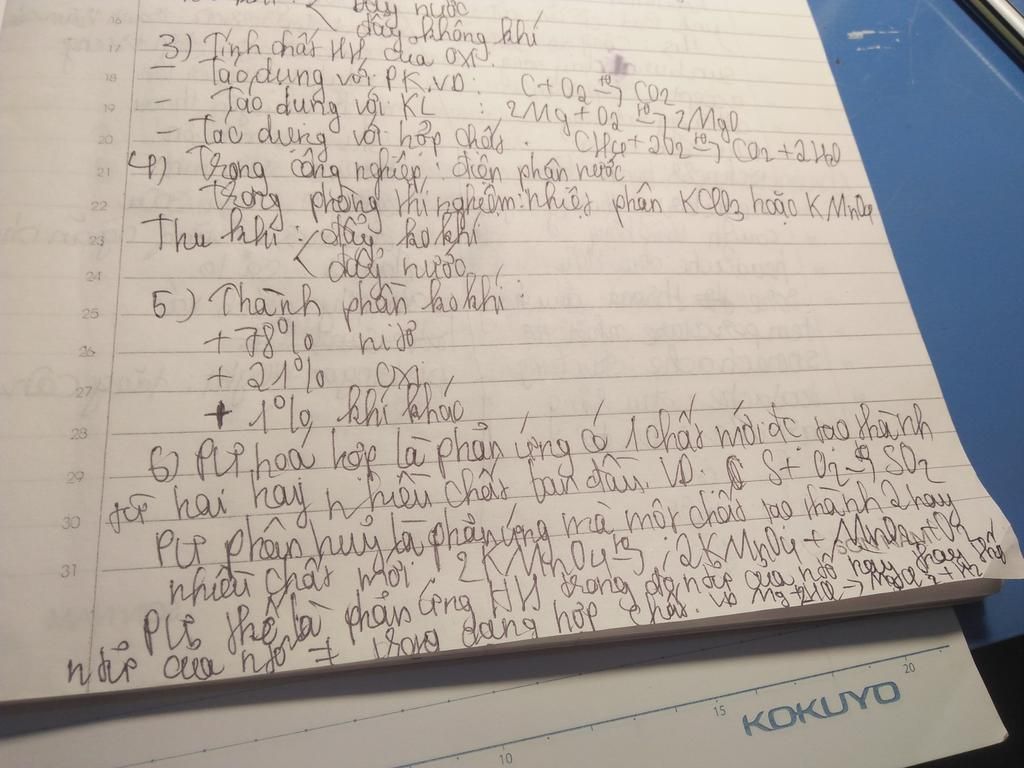 đẩy nước
đẩy không khí
3) Tính chất HH của oxi.
- Tác dụng với PK. VD: C + O2 t°→ CO2
- Tác dụng với KL : 2Mg + O2 t°→ 2MgO
- Tác dụng với hợp chất. CH4 + 2O2 t°→ CO2 + 2H2O
4) Trong công nghiệp: điện phân nước
trong phòng thí nghiệm: nhiệt phân KClO3 hoặc KMnO4
Thu khí: đẩy ko khí
đẩy nước
5) Thành phần ko khí:
+ 78% nitơ
+ 21% oxi
+ 1% khí khác
6) PƯ hoá hợp là phản ứng có 1 chất mới đc tạo thành
từ hai hay nhiều chất ban đầu. VD: S + O2 t°→ SO2
PƯ phân huỷ là phản ứng mà một chất tạo thành 2 hay
nhiều chất mới. 2KMnO4 t°→ 2KMnO4 + MnO2 + O2
PƯ thế là phản ứng HH trong đó ntử của nó hay thay thế
ntử của ngtố ≠ trong dạng hợp chất. VD Mg + 2HCl → MgCl2 + H2
16
17
18
19
20
21
22
23
24
25
26
27
28
29
30
31
10
15
20
KOKUYO